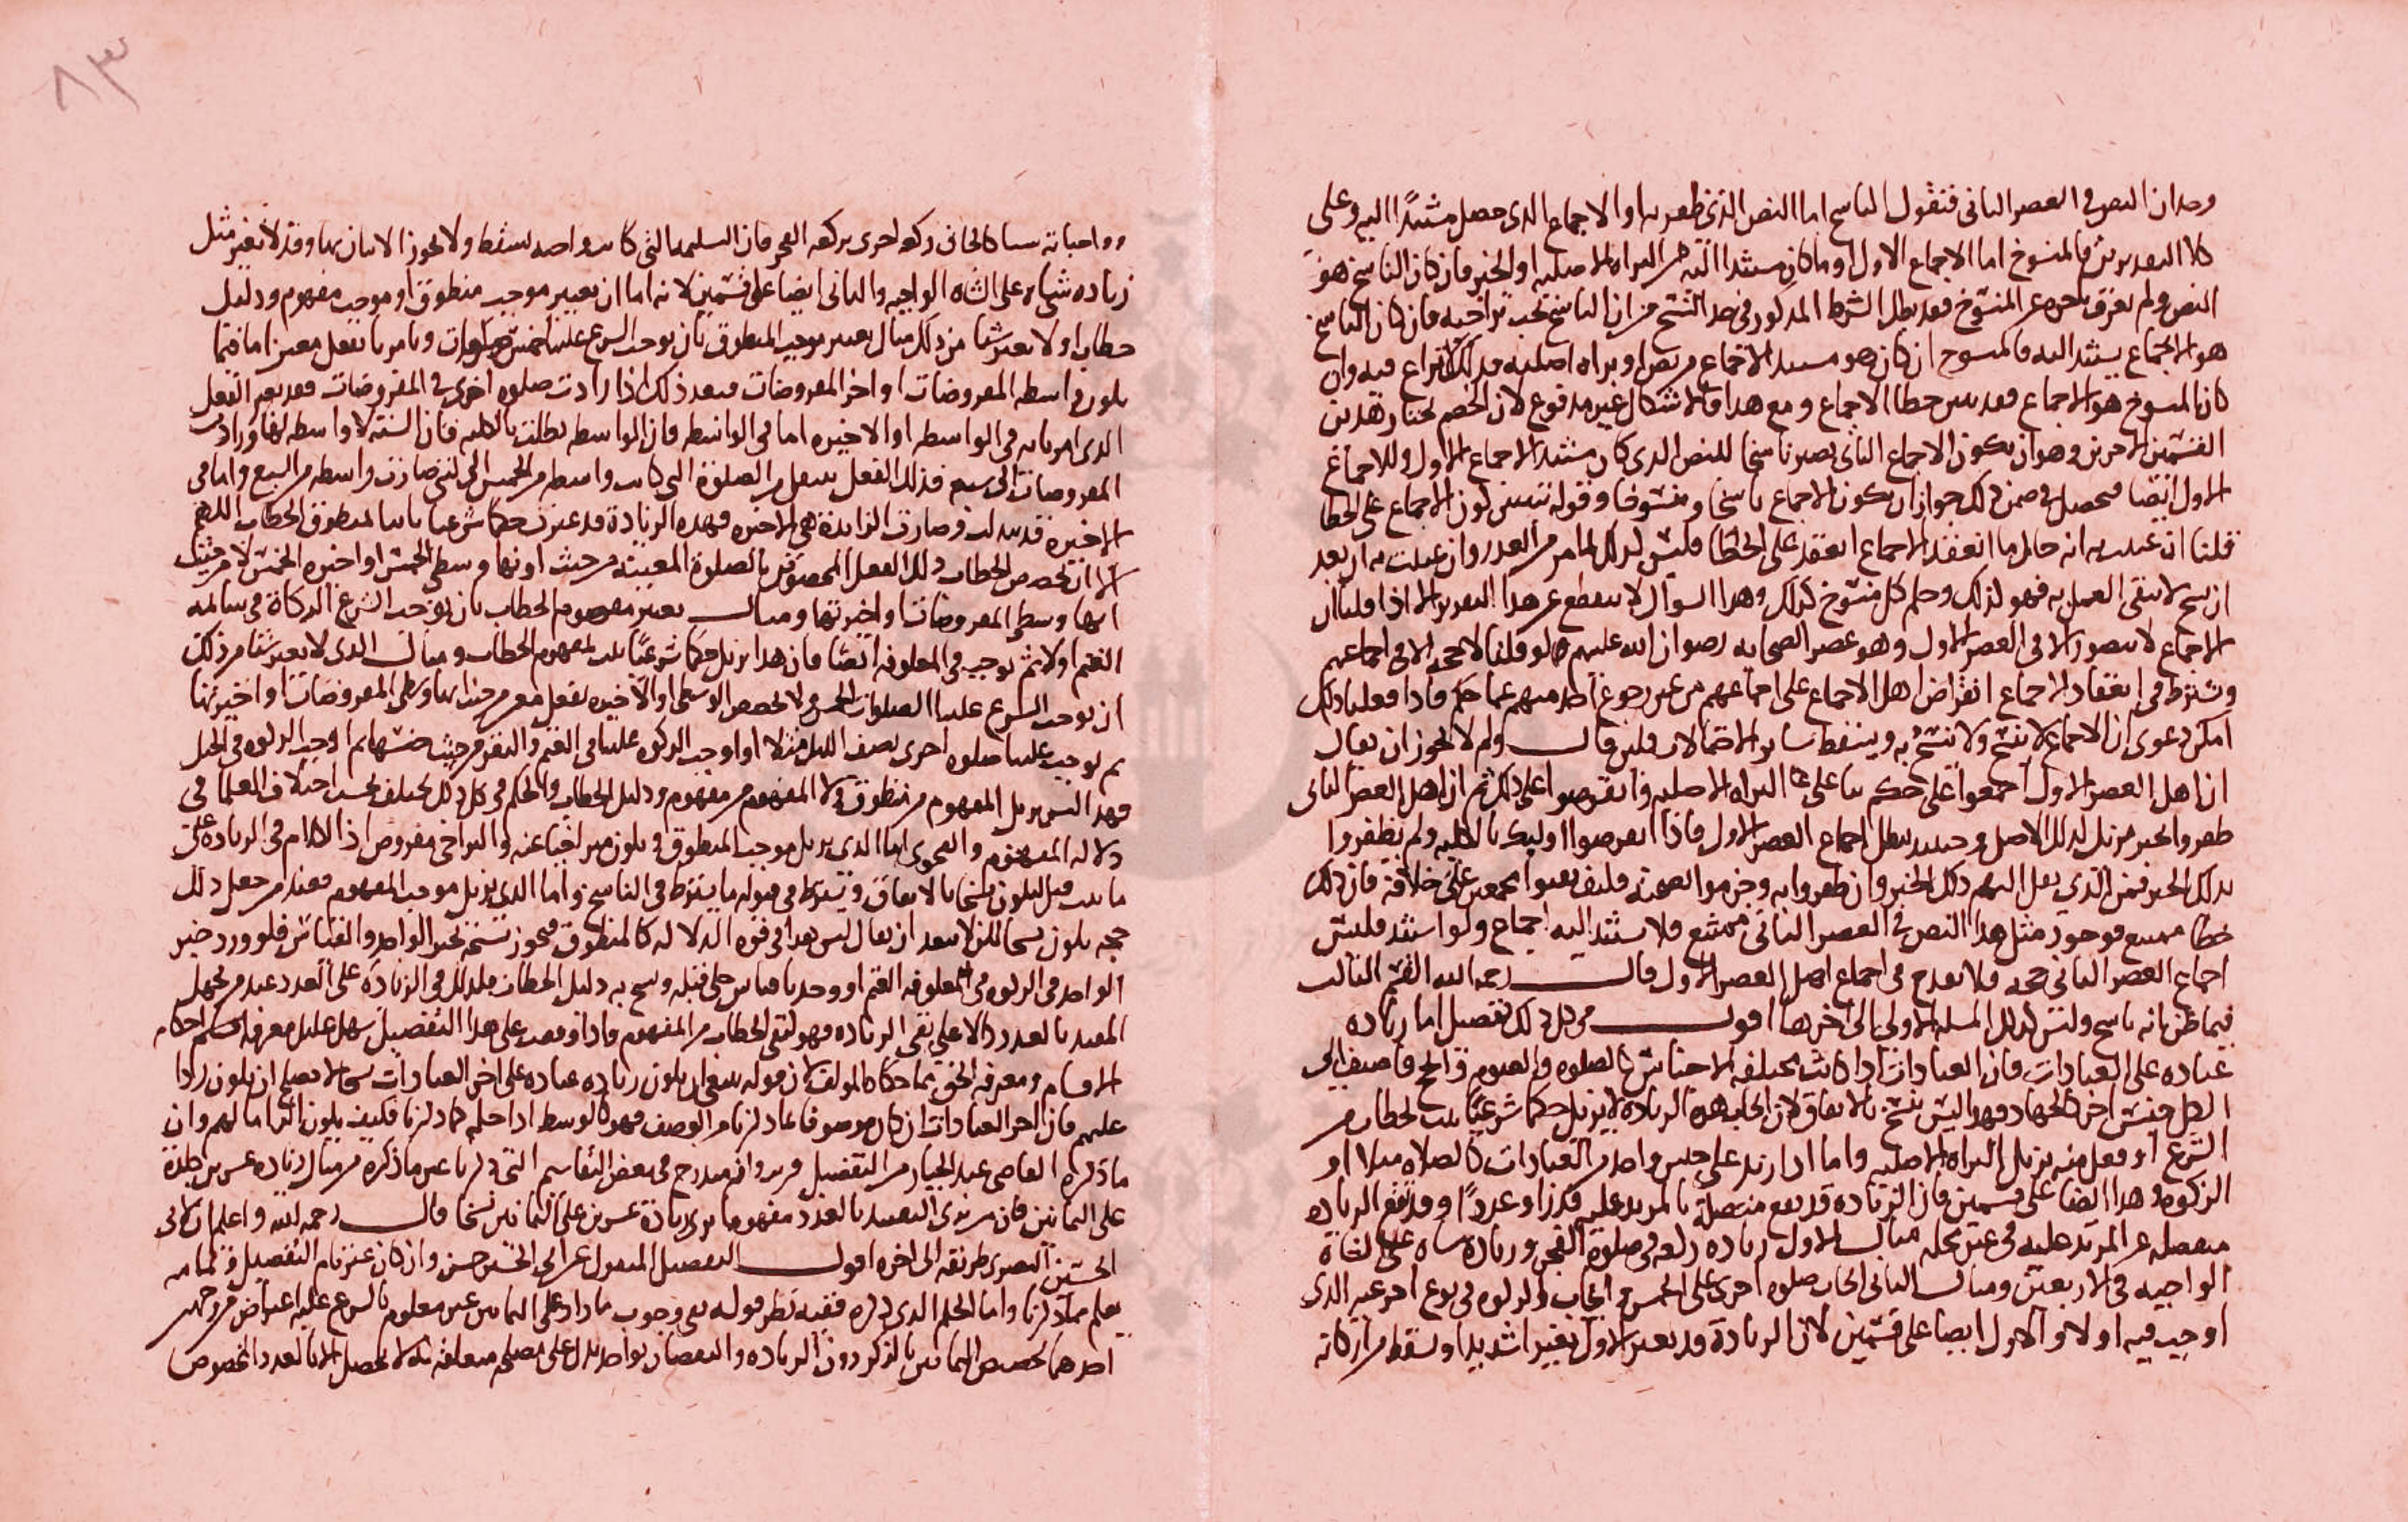 وجدان النص في العصر الثاني فنقول الناسخ اما النص الذي ظفر به او الاجماع الذي حصل مستندا اليه وعلى
كلا التقديرين فالمنسوخ اما الاجماع الاول او ما كان مستندا اليه من البراه الاصليه او الخبر فان كان الناسخ هو
النص ولم يفرق تاخره عن المنسوخ فقد بطل الشرط المذكور في حد النسخ من ان الناسخ يجب تراخيه فان كان الناسخ
هو الاجماع يستند اليه فالمنسوخ ان كان هو مستند الاجماع من نص او براه اصليه فذلك نزاع فيه وان
كان المنسوخ هو الاجماع فقد تبين خطا الاجماع ومع هذا فالاشكال غير مدفوع لان الخصم يختار هذين
القسمين الاخرين وهو ان يكون الاجماع الثاني يصير ناسخا للنص الذي كان مستند الاجماع الاول وللاجماع
الاول ايضا فيحصل في ضمن ذلك جواز ان يكون الاجماع ناسخا ومنسوخا وقوله تبين كون الاجماع على الخطا
قلنا ان عنيت به انه حال ما انعقد الاجماع انعقد على الخطا فليس كذلك لما مر من العذر وان عنيت به ان بعد
ان نسخ لا يبقى العمل به فهو كذلك وحكم كل منسوخ كذلك وهذا السوال لا ينقطع عن هذا التقدير الا اذا قلنا ان
الاجماع لا يتصور الا في العصر الاول وهو عصر الصحابه رضوان الله عليهم فلو قلنا لا حجه الا في اجماعهم
وشرط في انعقاد الاجماع انقراض اهل الاجماع على اجماعهم من غير رجوع احد منهم عما حكم فاذا فعلنا ذلك
امكن دعوى ان الاجماع لا ينسخ ولا ينسخ به ويسقط ساير الاحتمالات فلين قال ولم لا يجوز ان يقال
ان اهل العصر الاول اجمعوا على حكم بنا على البراه الاصليه وانقرضوا على ذلك ثم ان اهل العصر الثاني
ظفروا بخبر مزيل لذلك الاصل وحينئذ يبطل اجماع العصر الاول فاذا انقرضوا اوليك بالكليه ولم يظفروا
بذلك الخبر فمن الذي نقل اليهم ذلك الخبر وان ظفروا به وجزموا بصحته فكيف بقوا مجمعين على خلافه فان ذلك
خطا ممتنع فوجود مثل هذا النص في العصر الثاني ممتنع فلا يستند اليه اجماع ولو استند فليس
اجماع العصر الثاني حجه فلا يقدح في اجماع اهل العصر الاول قال رحمه الله القسم الثالث
فيما ظن انه ناسخ وليس كذلك المسله الاولى الى اخرها اقول في كل ذلك تفصيل اما زياده
عباده على العبادات فان العبادات اذا كانت مختلفه الاجناس كالصلوه والصوم والحج فاضيف الى
الكل جنس اخر كالجهاد فهذا ليس بنسخ بالاتفاق لان ايجاب هذه الزياده لا يزيل حكما شرعيا ثبت بخطاب من
الشرع او فعل منه يزيل البراه الاصليه واما اذا زيد على جنس واحد من العبادات كالصلاه مثلا او
الزكوه وهذا ايضا على قسمين فان الزياده قد تقع متصلة بالمزيد عليه قدرا وعددا وقد تقع الزياده
منفصله عن المزيد عليه في غير محله مثال الاول زياده ركعه في صلوة الفجر وزيادة شاه على الشاة
الواجبه في الاربعين ومثال الثاني ايجاب صلوه اخرى على الخمس وايجاب الزكوه في نوع اخر غير الذي
اوجبت فيه اولا والاول ايضا على قسمين لان الزيادة قد تغير الاول تغييرا شديدا وتسقط من اركانه
وواجباته شيا كالحاق ركعه اخرى بركعه الفجر فان التسليمه التي كانت واجبه تسقط ولا يجوز الاتيان بها وقد لا تغير مثل
زياده شاه على الشاه الواجبه والثاني ايضا على قسمين لانه اما ان يغيير موجب منطوق او موجب مفهوم ودليل
خطاب او لا يغير شيا من ذلك مثال تغيير موجب المنطوق بان يوجب الشرع علينا خمس صلوات ويامر بفعل معين اما فيما
يكون واسطه المفروضات او اخر المفروضات فبعد ذلك اذا زادت صلوه اخرى في المفروضات فقد تغير الفعل
الذي امرنا به في الواسطه او الاخيره اما في الواسطه فان الواسطه بطلت بالكليه فان السته لا واسطه لها وزادت
المفروضات الى سبع فذلك الفعل ينتقل من الصلوة التي كانت واسطه من الخمس الى التي صارت واسطه من السبع واما في
الاخيره قد تبدلت وصارت الزايدة هي الاخيره فهذه الزيادة قد غيرت حكما شرعيا ثابتا بمنطوق الخطاب اللهم
الا ان يخصص الخطاب ذلك الفعل المخصوص بالصلوة المعينه من حيث كونها وسطى الخمس او اخيره الخمس لا من حيث
انها وسطى المفروضات واخيرتها ومثال تغيير مفهوم الخطاب بان يوجب الشرع الزكاة في سايمه
الغنم اولا ثم يوجب في المعلوفه ايضا فان هذا يزيل حكما شرعيا ثبت بمفهوم الخطاب ومثال الذي لا يغير شيا من ذلك
ان يوجب الشرع علينا الصلوات الخمس ولا يخصص الوسطى والاخيره بفعل معين من حيث انها وسطى المفروضات او اخيرتها
ثم يوجب علينا صلوه اخرى نصف الليل مثلا او اوجب الزكوه علينا في الغنم والبقر من حيث جنسهما ثم اوجب الزكوه في الخيل
فهذا ليس يزيل المفهوم من منطوق ولا المفهوم من مفهوم ودليل الخطاب والحكم في كل ذلك يختلف بحسب اختلاف العلما في
دلاله المفهوم والفحوى اما الذي يزيل موجب المنطوق ويكون متراخيا عنه والتراخي مفروض اذ الكلام في الزياده على
ما ثبت قبل فيكون نسخا بالاتفاق ويشترط في قبوله ما يشترط في الناسخ واما الذي يزيل موجب المفهوم فعند من جعل ذلك
حجه يكون نسخا لكن لا يبعد ان يقال ليس هذا في قوه الدلاله كالمنطوق فيجوز نسخه بخبر الواحد والقياس فلو ورد خبر
الواحد في الزكوه في معلوفه الغنم او وجدنا قياس جلي قبله ونسخ به دليل الخطاب فكذلك في الزيادة على العدد عند من يجعل
المقيد بالعدد دالا على نفي الزياده فهو كنفي الخطاب من المفهوم واذا وقعت على هذا التفصيل سهل عليك معرفه احكام
الاقسام ومعرفه الحق مما حكاه المولف لان قوله ينبغي ان يكون زياده عباده على اخر العبادات نسخا لا يصلح ان يكون ردا
عليهم فان اخر العبادات ان كان موصوفا بما ذكرنا من الوصف فهو كالوسط اذا حكمه كما ذكرنا فكيف يكون الزاما لهم وان
ما ذكره القاضي عبد الجبار من التفصيل مندرج في بعض التقاسيم التي ذكرنا غير ما ذكره من مثال زياده عشرين جلدة
على الثمانين فان من يرى التقييد بالعدد مفهوما يرى زيادة عشرين على الثمانين نسخا قال رحمه الله واعلم ان لابي
الحسين البصري طريقه الى اخره اقول التفصيل المنقول عن ابي الحسين حسن وان كان غير تام التفصيل وتمامه
يعلم مما ذكرنا واما الحكم الذي ذكره ففيه نظر قوله نفي وجوب ما زاد على الثمانين غير معلوم بالشرع عليه اعتراض من وجهين
احدهما تخصيص الثمانين بالذكر دون الزياده والنقصان بواحد يدل على مصلحه متعلقه بذلك لا تحصل الا بالعدد المخصوص
٨٣